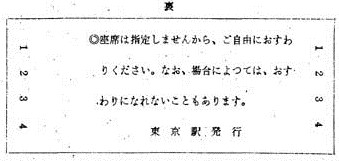 裏
◎座席は指定しませんから、ご自由におすわ
りください。なお、場台によつては、おす
わりになれないこともあります。
東京駅発行
1 2 3 4
1 2 3 4